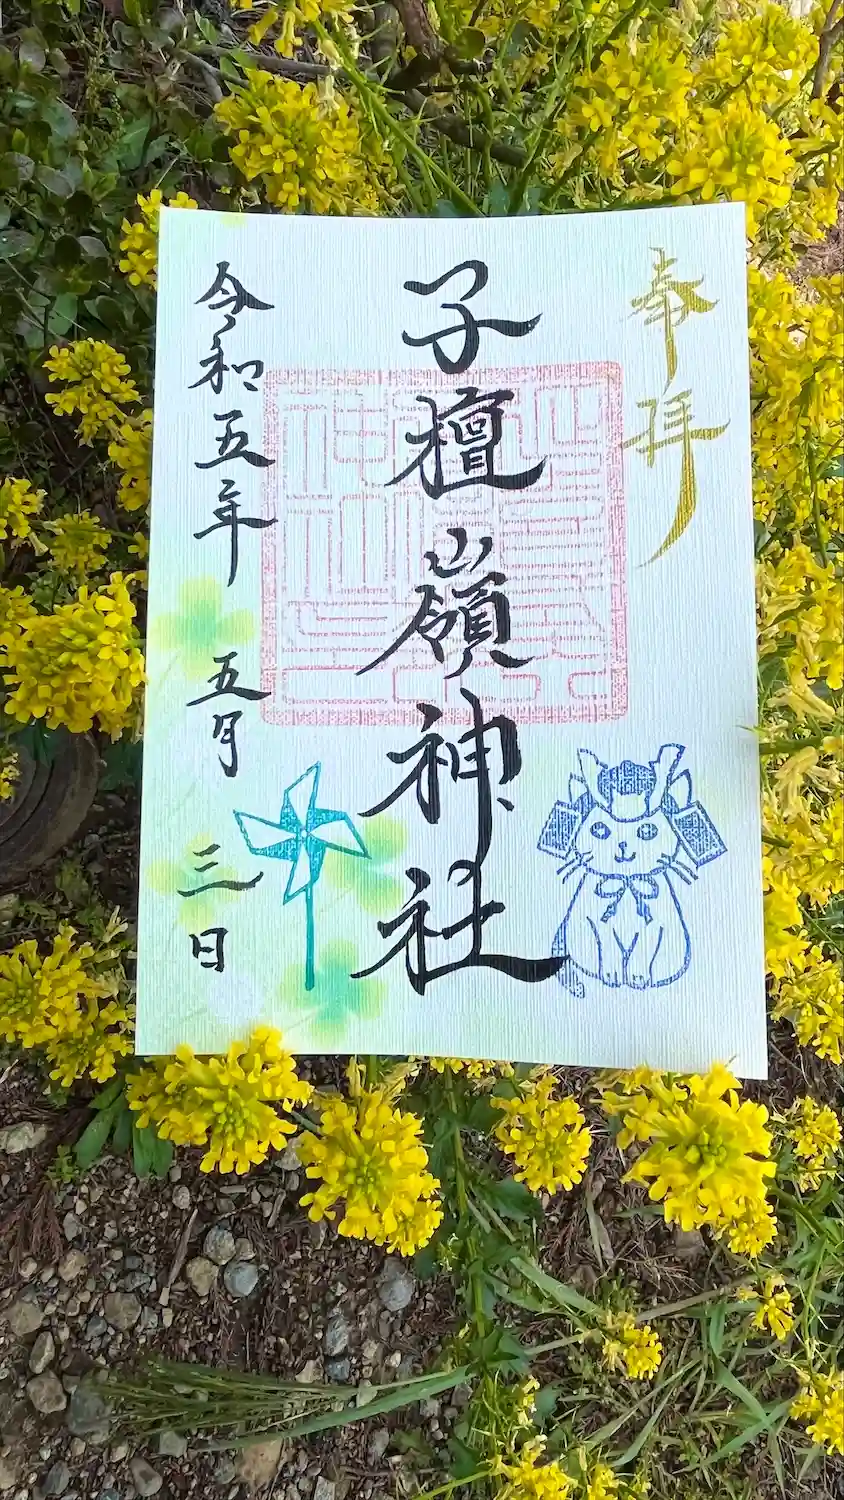 奉拝
子檀嶺神社
令和五年 五月 三日